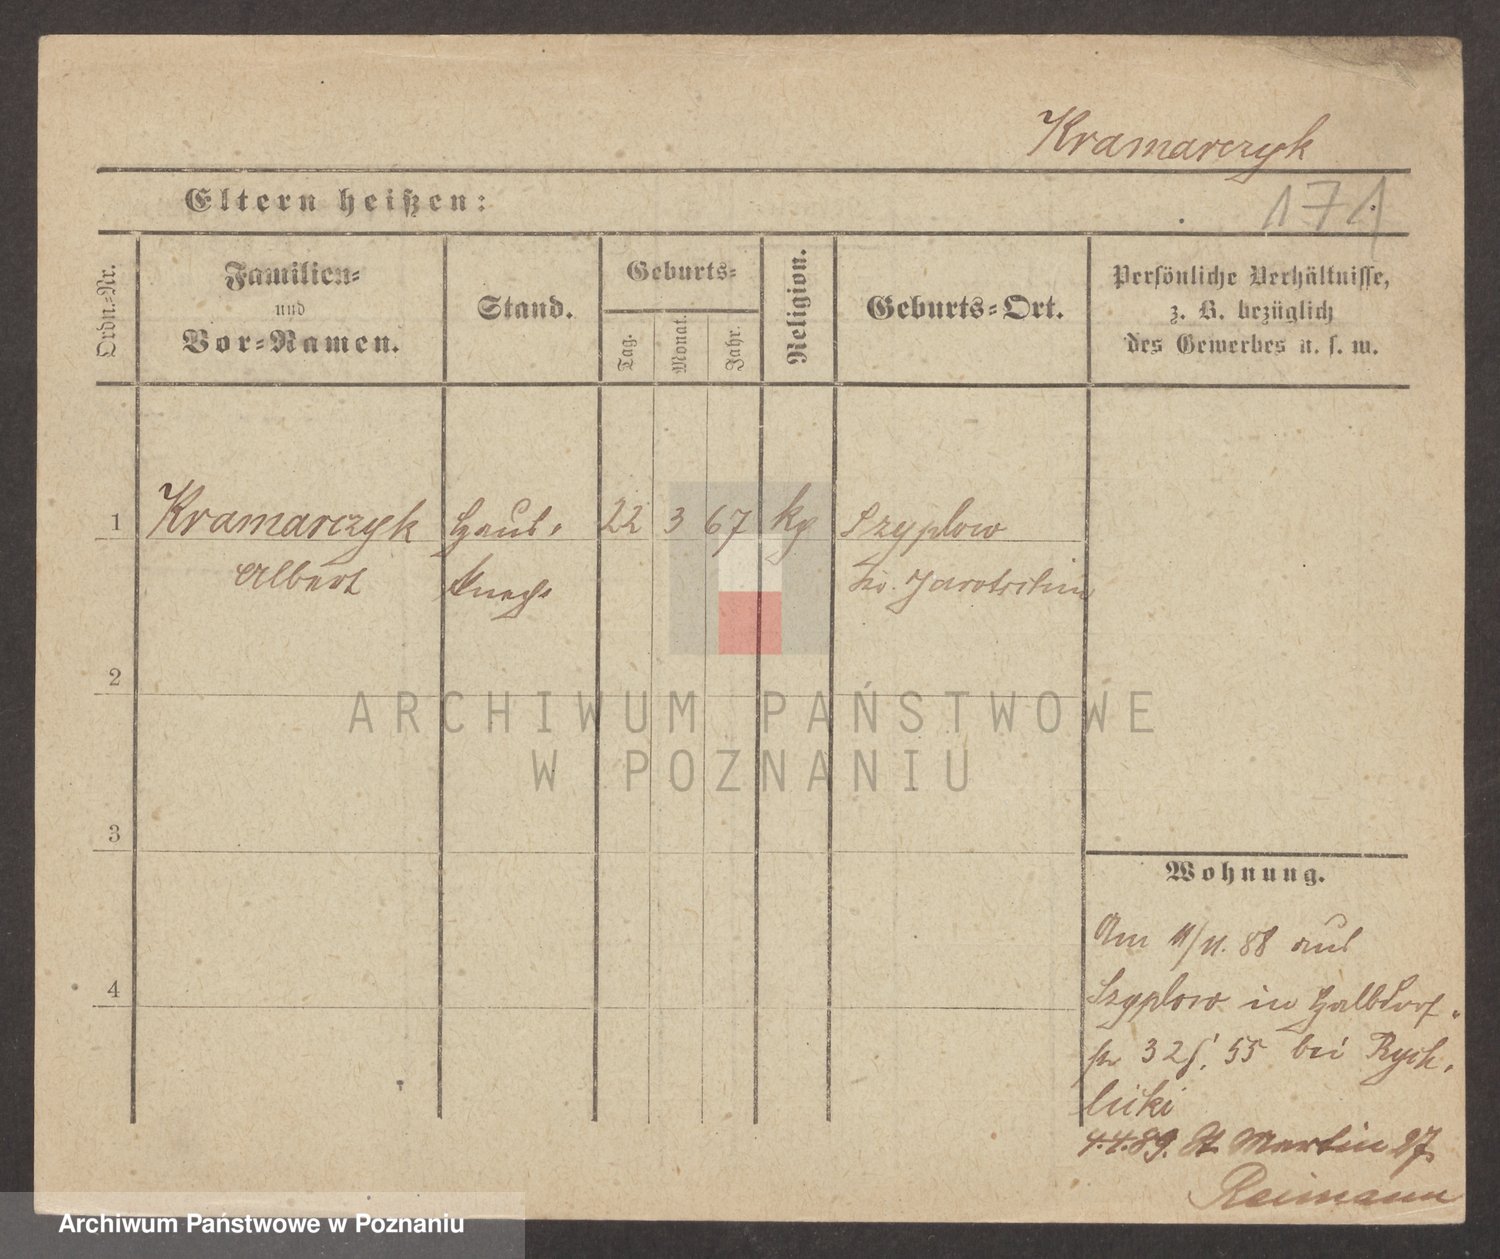 Kramarczyk
171
Eltern heißen:
Ordn.-Nr.
Familien-
und
Vor-Namen.
Stand.
Geburts-
Tag.
Monat.
Jahr.
Religion.
Geburts-Ort.
Persönliche Verhältnisse,
z. B. bezüglich
des Gewerbes u. s. w.
1 Kramarczyk Haus- 22 3 67 kg Szyplow
Albert knecht Kr. Jarotschin
2
3
4
Wohnung.
Am 11/11. 88 aus
Szyplow in Halbdorf-
str 32 55 bei Rych-
licki
4.4.89. St. Martin 27.
Reimann
ARCHIWUM PAŃSTWOWE
W POZNANIU
Archiwum Państwowe w Poznaniu